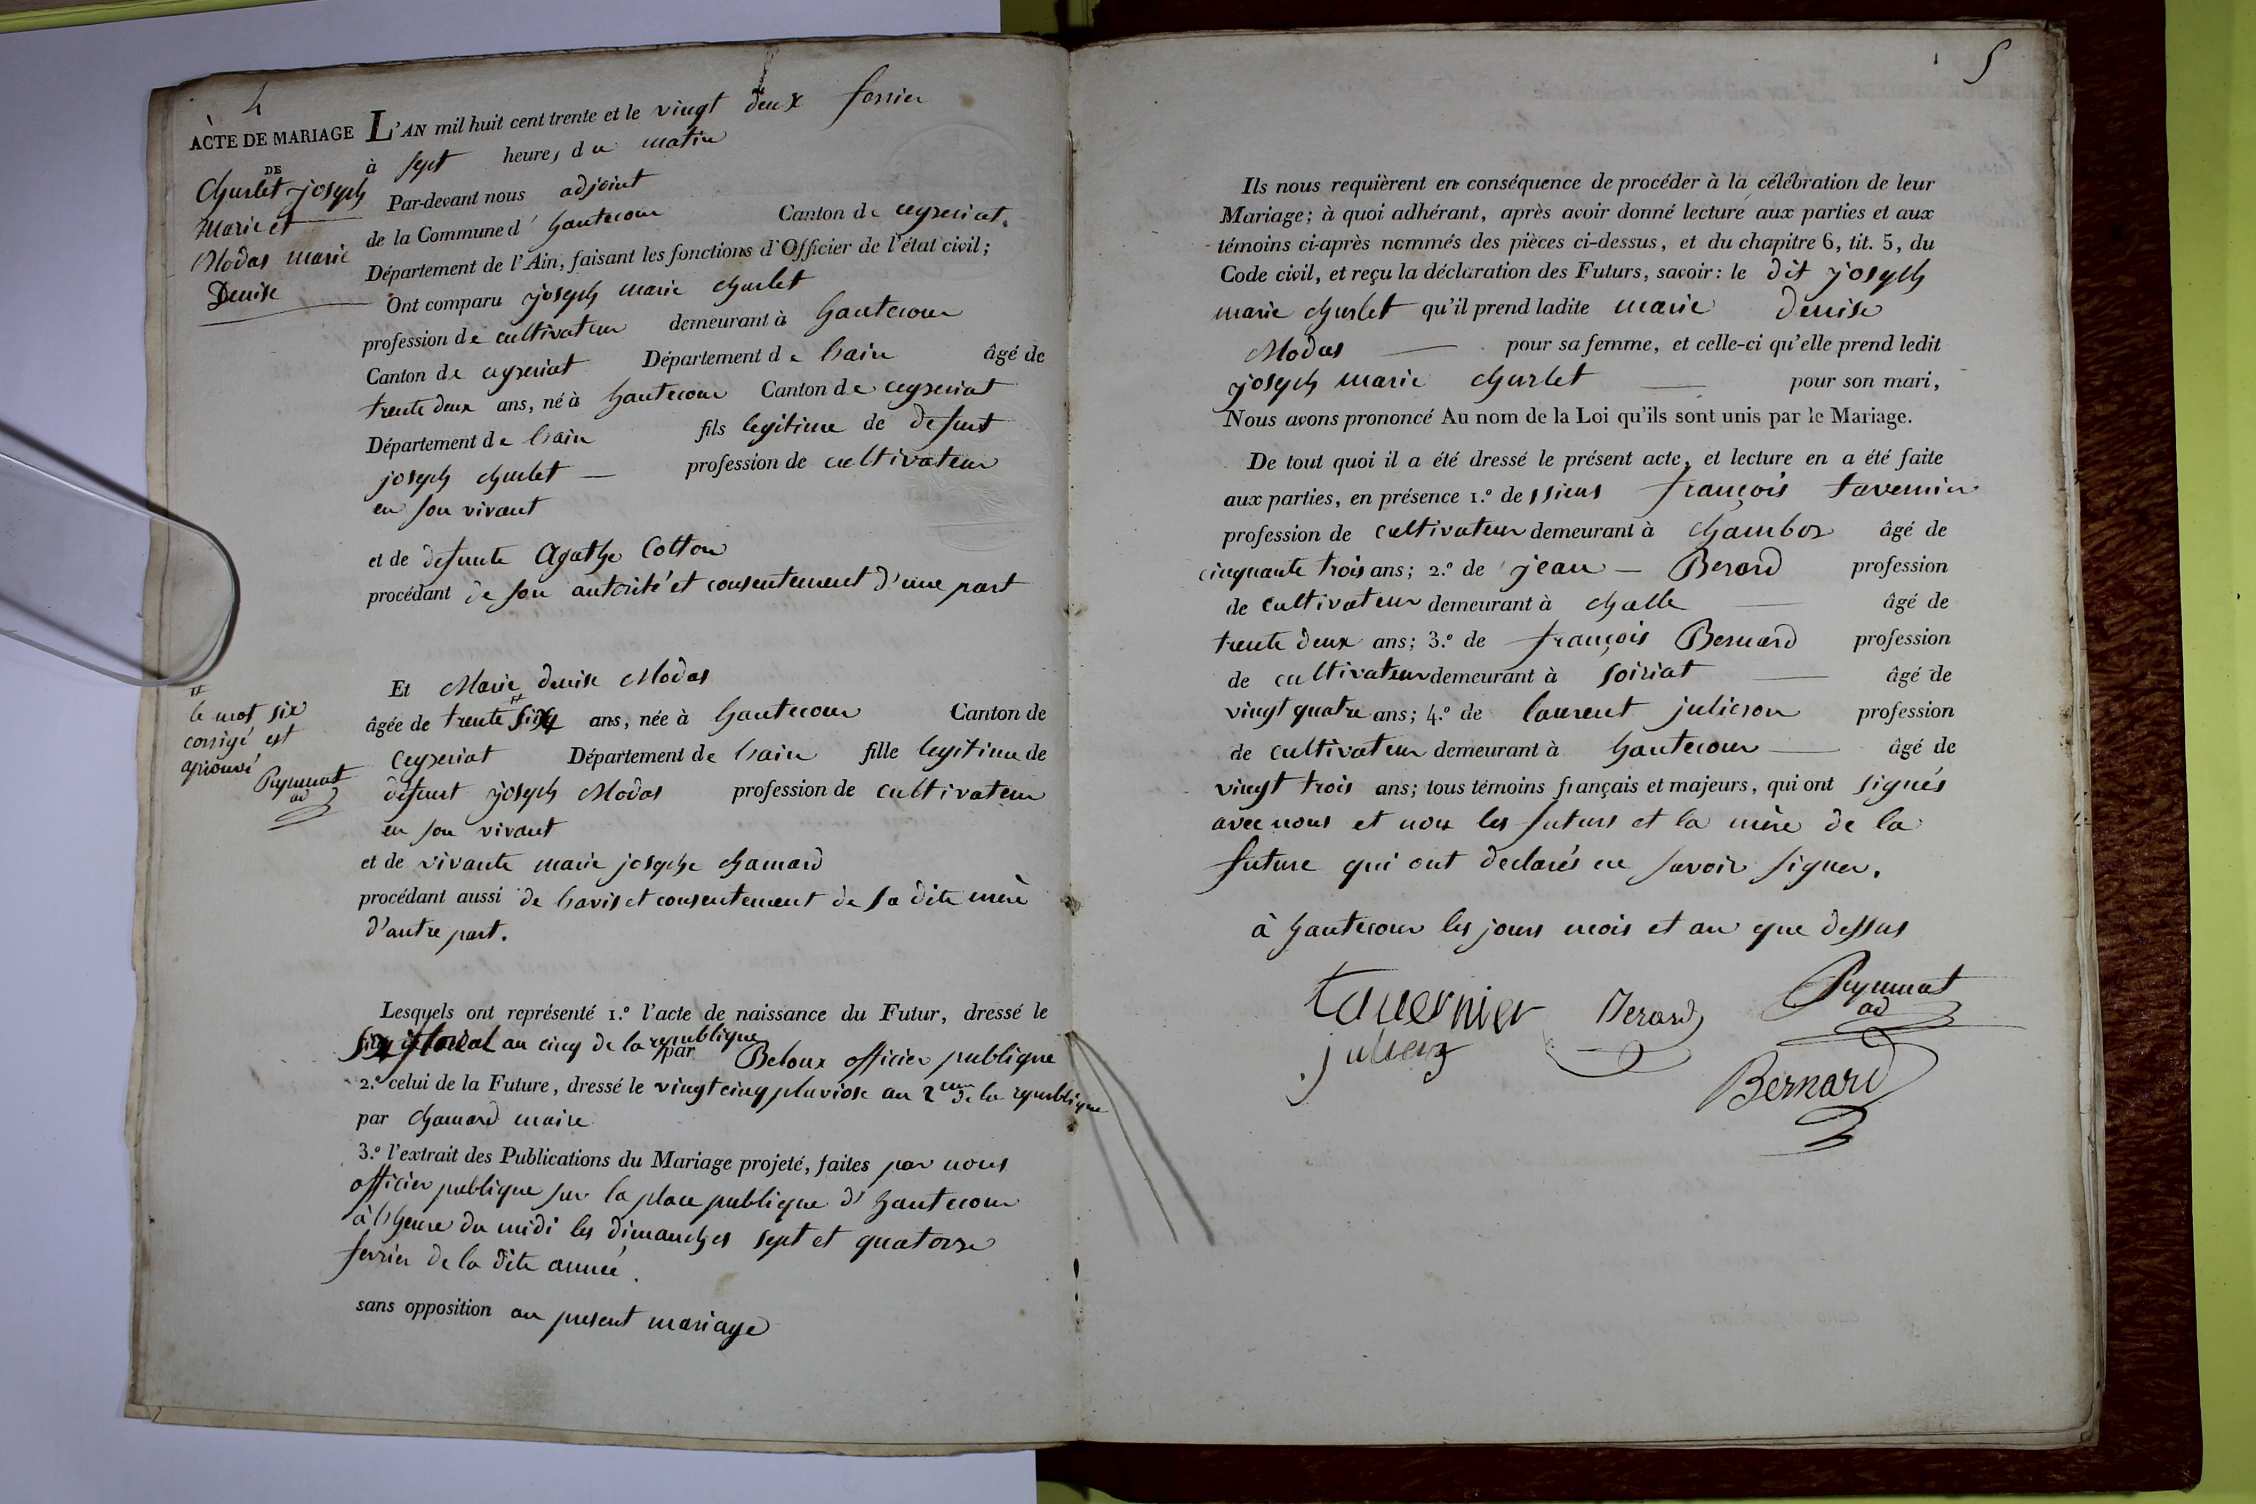 4
ACTE DE MARIAGE
DE
Churlet joseph
Marie et
Modas marie
Denise
L'AN mil huit cent trente et le vingt deux fevrier
à sept heures du matin
Par-devant nous adjoint
de la Commune d'hautecour Canton de ceyzeriat.
Département de l'Ain, faisant les fonctions d'Officier de l'état civil;
Ont comparu joseph marie churlet
profession de cultivateur demeurant à hautecour
Canton de ceyzeriat Département de lain âgé de
trente deux ans, né à hautecour Canton de ceyzeriat
Département de lain fils legitime de defunt
joseph churlet — profession de cultivateur
en son vivant
et de defunte Agathe Cotton
procédant de son autorité et consentement d'une part
Et Marie denise Modas
âgée de trente six ans, née à hautecour Canton de
Ceyzeriat Département de lain fille legitime de
defunt joseph Modas profession de cultivateur
en son vivant
et de vivante marie josephe chamard
procédant aussi de lavis et consentement de sa dite mère
d'autre part.
le mot six
corrigé est
aprouvé
ad
Lesquels ont représenté 1.º l'acte de naissance du Futur, dressé le
floréal an cinq de la republique
par Beloux officier publique
2.º celui de la Future, dressé le vingt cinq pluviose an 2me de la republique
par chamard maire
3.º l'extrait des Publications du Mariage projeté, faites par nous
officier publique sur la place publique d'hautecour
à lheure du midi les dimanches sept et quatorze
fevrier de la dite année.
sans opposition au present mariage
5
Ils nous requièrent en conséquence de procéder à la célébration de leur
Mariage; à quoi adhérant, après avoir donné lecture aux parties et aux
témoins ci-après nommés des pièces ci-dessus, et du chapitre 6, tit. 5, du
Code civil, et reçu la déclaration des Futurs, savoir: le dit joseph
marie churlet qu'il prend ladite marie denise
Modas — pour sa femme, et celle-ci qu'elle prend ledit
joseph marie churlet — pour son mari,
Nous avons prononcé Au nom de la Loi qu'ils sont unis par le Mariage.
De tout quoi il a été dressé le présent acte, et lecture en a été faite
aux parties, en présence 1.º de ssieurs françois tavernier
profession de cultivateur demeurant à chambos âgé de
cinquante trois ans; 2.º de jean — Berard profession
de cultivateur demeurant à challe — âgé de
trente deux ans; 3.º de françois Bernard profession
de cultivateur demeurant à soiriat — âgé de
vingt quatre ans; 4.º de laurent julieron profession
de cultivateur demeurant à hautecour — âgé de
vingt trois ans; tous témoins français et majeurs, qui ont signés
avec nous et non les futurs et la mère de la
future qui ont declarés ne savoir signer.
à hautecour les jours mois et an que dessus
tavernier Berard
ad
Bernard